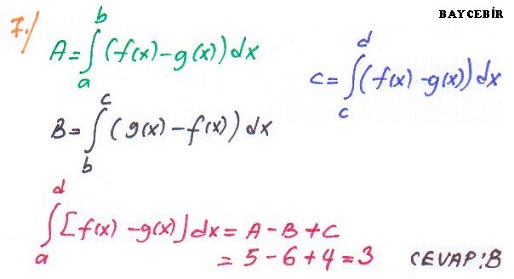 BAYCEBİR
7./
A = ∫_a^b (f(x) - g(x)) dx
C = ∫_c^d (f(x) - g(x)) dx
B = ∫_b^c (g(x) - f(x)) dx
∫_a^d [f(x) - g(x)] dx = A - B + C
= 5 - 6 + 4 = 3
CEVAP: B